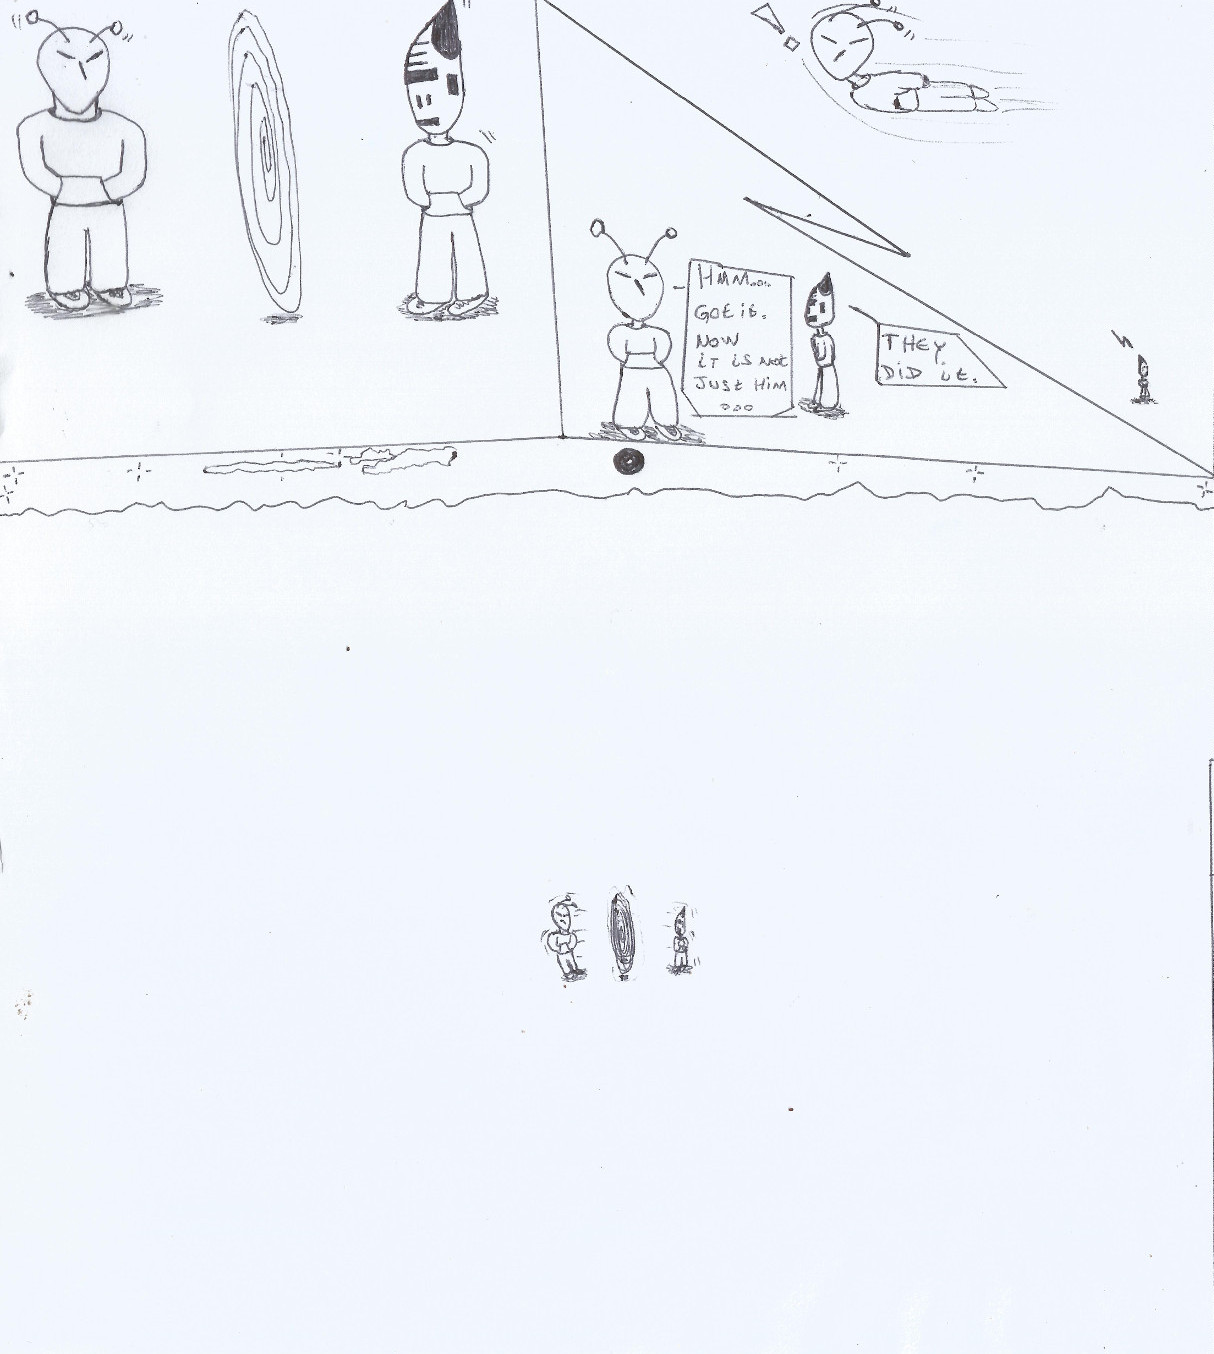 HMM...
GOt it.
NOW
iT iS NOt
JUSt HiM
...
THEY
DiD it.